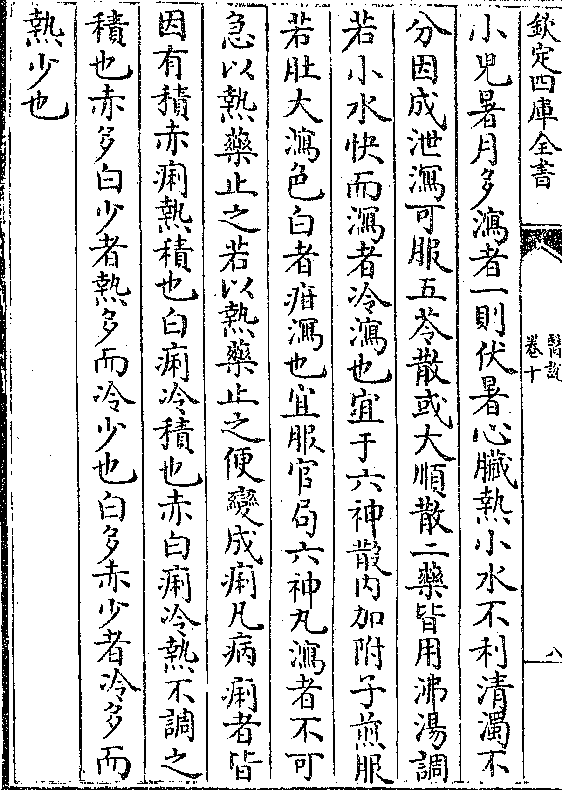 欽定四庫全書
醫説
卷十
八
小兒暑月多瀉者一則伏暑心臟熱小水不利清濁不
分因成泄瀉可服五苓散或大順散二藥皆用沸湯調
若小水快而瀉者冷瀉也宜于六神散内加附子煎服
若肚大瀉色白者疳瀉也宜服官局六神丸瀉者不可
急以熱藥止之若以熱藥止之便變成痢凡病痢者皆
因有積赤痢熱積也白痢冷積也赤白痢冷熱不調之
積也赤多白少者熱多而冷少也白多赤少者冷多而
熱少也